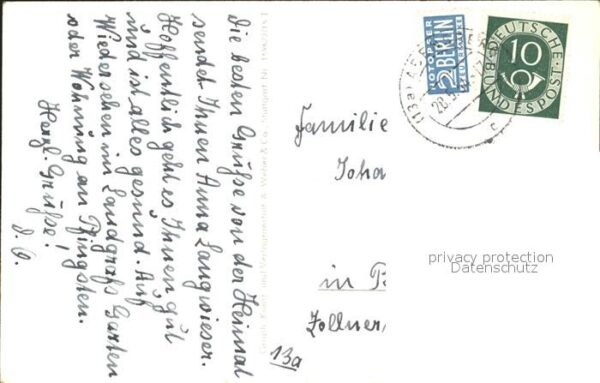 Die besten Grüße von der Heimat
sendet Ihnen Anna Langwieser.
Hoffentlich geht es Ihnen gut
und ist alles gesund. Auf
Wiedersehen im Landgrafs Garten
oder Wohnung an Pfingsten.
Herzl. Grüße!
Familie
Joha
in
Zollner
13a
NOTOPFER
2 BERLIN
STEUERMARKE
DEUTSCHE
BUNDESPOST
10
(13a)
28.5
privacy protection
Datenschutz